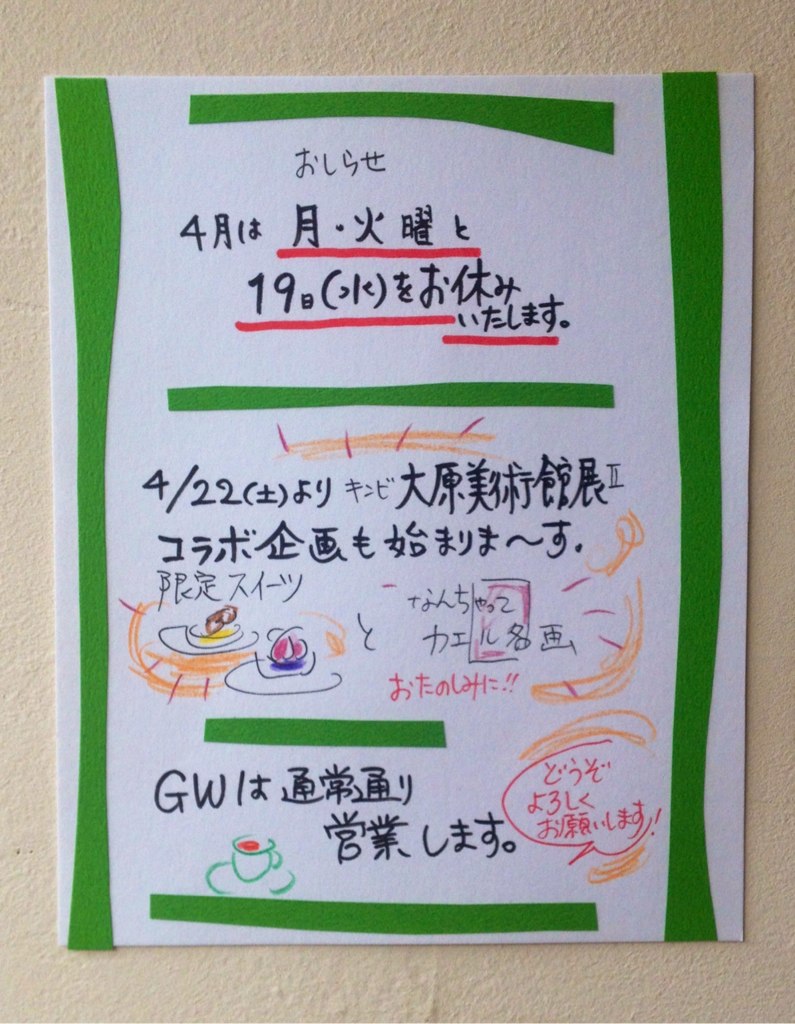 おしらせ
4月は 月・火曜と
19日(水)をお休み
いたします。
4/22(土)より キンビ 大原美術館展Ⅱ
コラボ企画も始まりま〜す.
限定スイーツ
と
なんちゃって
カエル名画
おたのしみに!!
GWは通常通り
営業します。
どうぞ
よろしく
お願いします!